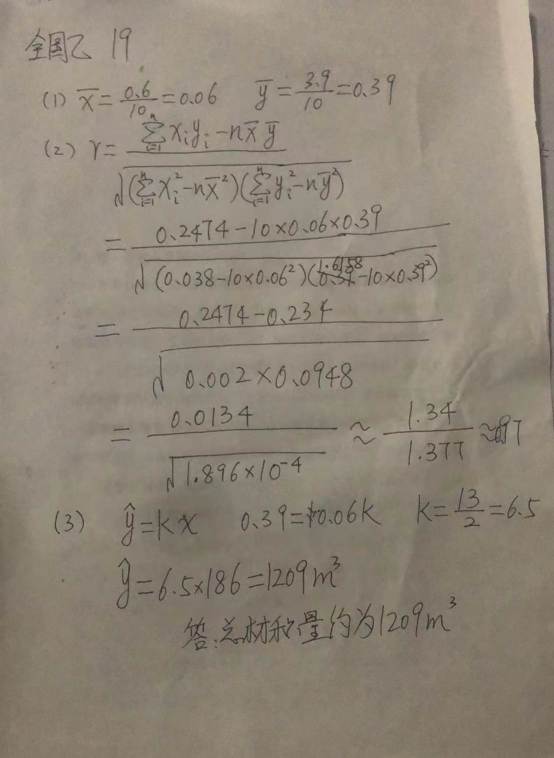 全国乙 19
(1) x̄ = 0.6/10 = 0.06  ȳ = 3.9/10 = 0.39
(2) r = (∑ᵢ₌₁ⁿ xᵢyᵢ - nx̄ȳ) / √((∑ᵢ₌₁ⁿ xᵢ² - nx̄²)(∑ᵢ₌₁ⁿ yᵢ² - nȳ²))
= (0.2474 - 10×0.06×0.39) / √((0.038 - 10×0.06²)(1.6158 - 10×0.39²))
= (0.2474 - 0.234) / √(0.002×0.0948)
= 0.0134 / √(1.896×10⁻⁴) ≈ 1.34/1.377 ≈ 0.97
(3) ŷ = kx  0.39 = 0.06k  k = 13/2 = 6.5
ŷ = 6.5×186 = 1209m³
答:总材积量约为1209m³